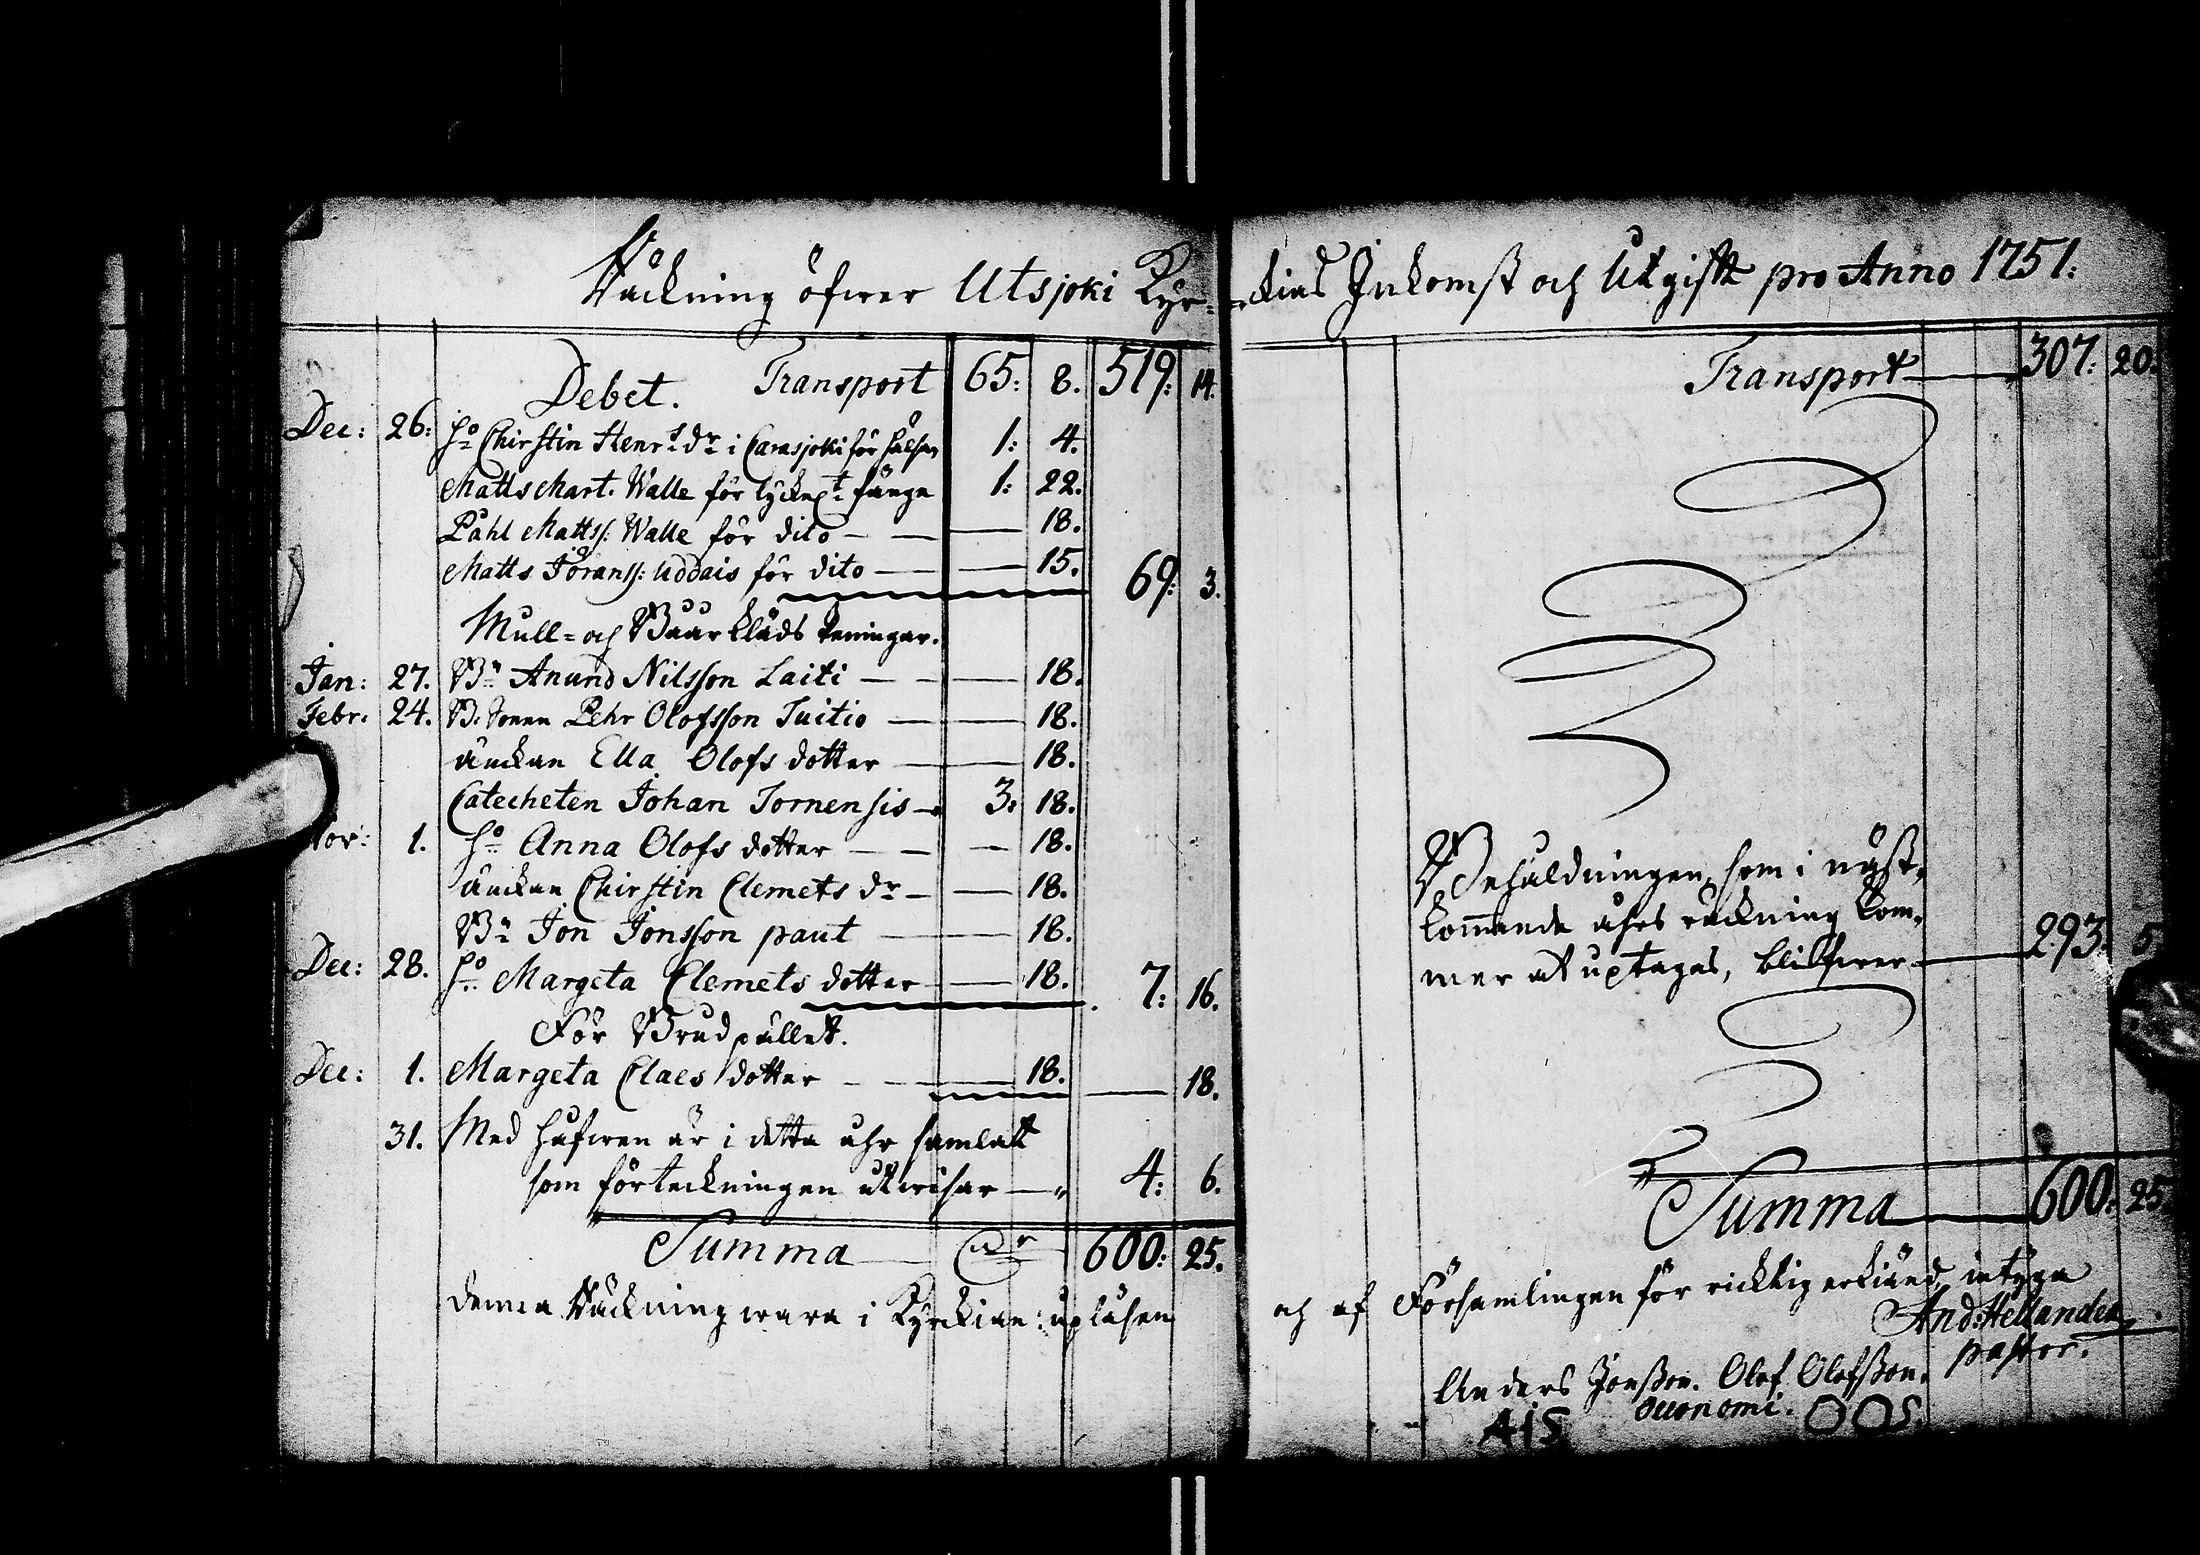 Räckning öfwer Utsjoki Kyr-
Debet. Transport 65: 8. 519: 14.
Dec: 26: H:o Chirstin Henr:s d:r i Carasjoki för hälsan 1: 4.
Matts Mart. Walle för lyckel:t fånge 1: 22.
Påhl Matts: Walle för dito — — — 18.
Matts Jöranss: Uddais för dito — — 15. 69: 3.
Mull- och Baarkläds peningar.
Jan: 27. B:n Anund Nilsson Laiti — — 18.
Febr: 24. B: Sonen Pehr Olofsson Tuitio — — 18.
änckan Ella Olofs dotter — — 18.
Catecheten Johan Tornensis — 3: 18.
Nov: 1. H:o Anna Olofs dotter — — 18.
änckan Chirstin Clemets d:r — — 18.
B:n Jon Jonsson paut — — 18.
Dec: 28. H:o Margeta Clemets dotter — 18. 7: 16.
För Brudpället.
Dec: 1. Margeta Claes dotter — — 18. — 18.
31. Med håfwen är i detta åhr samlat
som förteckningen utwisar — 4: 6.
Summa 600: 25.
denna Räckning wara i Kyrckian upläsen
-ckias Inkomst och Utgift pro Anno 1751:
Transport — 307: 20.
Behåldningen, som i näst-
kommande åhrs räckning kom-
mer at uptagas, blifwer — 293: 5
Summa — 600: 25.
och af Församlingen för ricktig erkiänd, intyga
And: Hellander
pastor.
Anders Jonsson. Olof Olofsson.
AIS oeconomi. OOS.